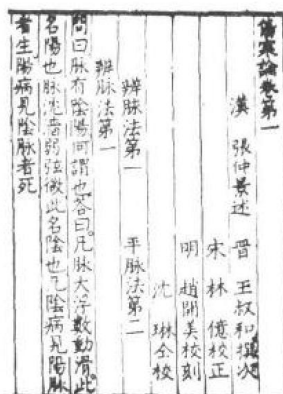 傷寒論卷第一
漢 張仲景述 晉 王叔和撰次
宋 林 億校正
明 趙開美校刻
沈 琳仝校
辨脉法第一 平脉法第二
辨脉法第一
問曰脉有陰陽何謂也荅曰凡脉大浮數動滑此
名陽也脉沈濇弱弦微此名陰也凡陰病見陽脉
者生陽病見陰脉者死